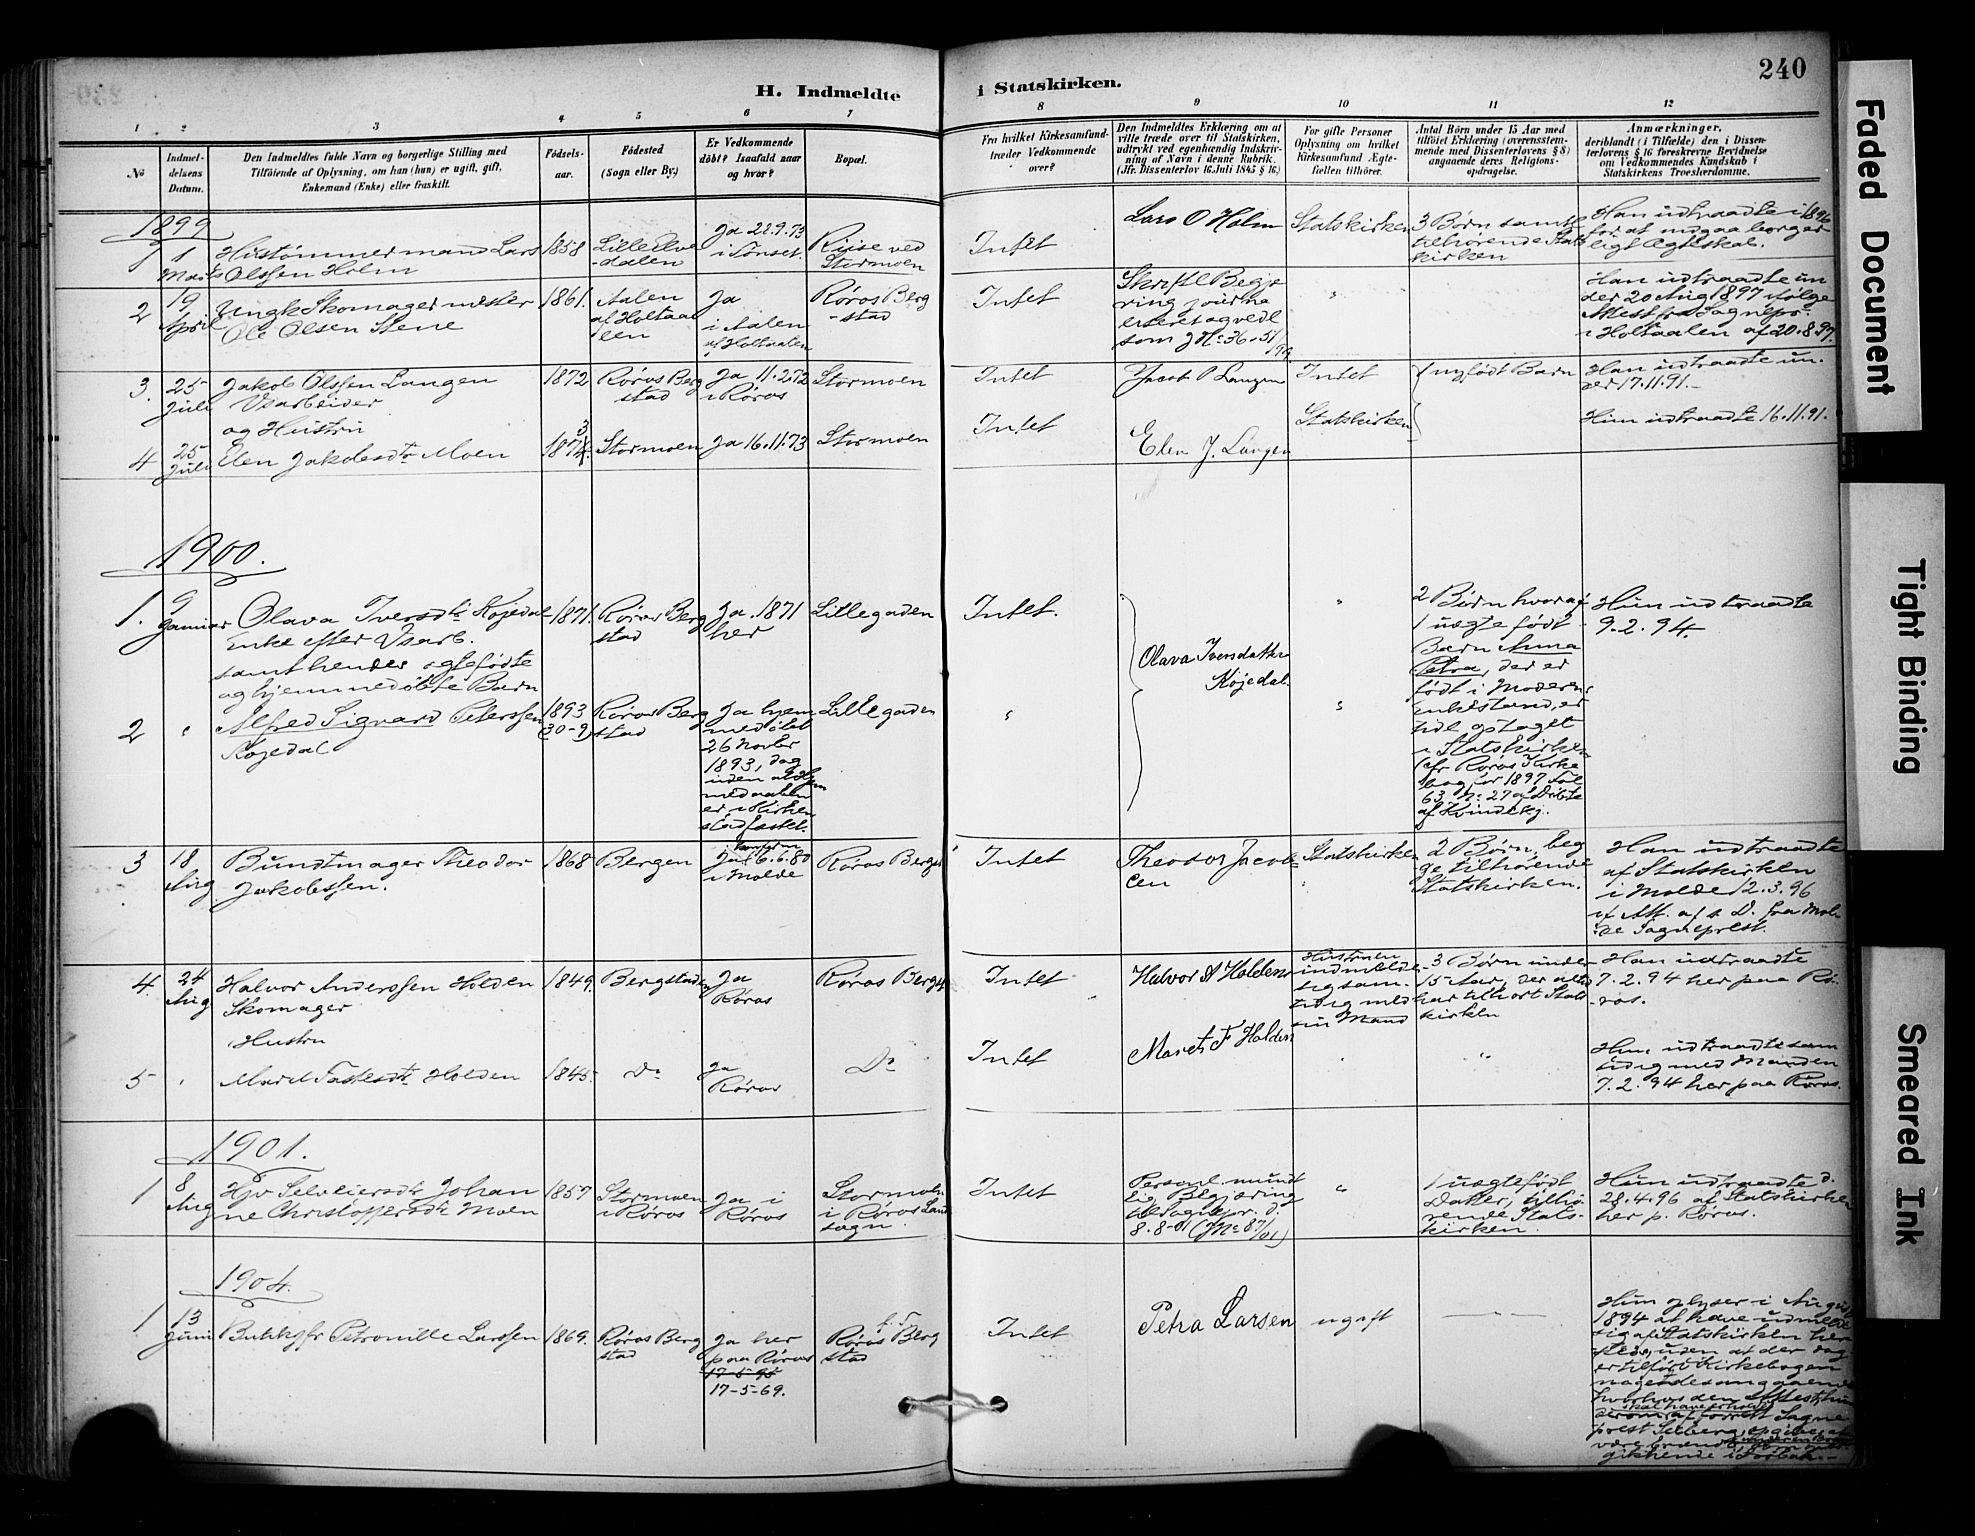 240
H. Indmeldte i Statskirken.
1 2 3 4 5 6 7 8 9 10 11 12
No
Indmel-
delsens
Datum.
Den Indmeldtes fulde Navn og borgerlige Stilling med
Tilföiende af Oplysning, om han (hun) er ugift, gift,
Enkemand (Enke) eller fraskilt.
Födsels-
aar.
Födested
(Sogn eller By.)
Er Vedkommende
döbt? Isaafald naar
og hvor?
Bopæl.
Fra hvilket Kirkesamfund-
træder Vedkommende
over?
Den Indmeldtes Erklæring om at
ville træde over til Statskirken,
udtrykt ved egenhændig Indskriv-
ning af Navn i denne Rubrik.
(Jfr. Dissenterlov 16 Juli 1845 § 16)
For gifte Personer
Oplysning om hvilket
Kirkesamfund Ægte-
fællen tilhörer.
Antal Börn under 15 Aar med
tilföiet Erklæring (overensstem-
mende med Dissenterlovens § 8)
angaaende deres Religions-
opdragelse.
Anmærkninger,
deriblandt (i Tilfælde) den i Dissen-
terlovens § 16 foreskrevne Bevidnelse
om Vedkommendes Kundskab i
Statskirkens Troeslærdomme.
1899
1
Marts
Hustømmermand Lars
Olssen Holm
1858
Lille Elve
-dalen
Ja 22.9.73
i Tønset.
Ruse ved
Stormoen
Intet
Lars O Holm
Statskirken
3 Børn samt
tilhørende Stats
kirken
Han udtraadte i 1896
for at indgaa borger
ligt Ægteskab.
2
19
April
Ungk Skomagermester
Ole Olsen Stene
1861.
Aalen
af Holtaa
len
Ja
i Aalen
af Holtaalen
Røros Berg
-stad
Intet
Skriftl Begjæ
ring journa
liseret og vedl
som J No 36.51/99.
"
Han udtraadte un
der 20 Aug 1897 ifølge
Attest fra Sognepr.
i Holtaalen af 20.8.97.
3.
25
Juli
Jakob Olssen Langen
Vsarbeider
og Hustru
1872
Røros Berg
stad
Ja 11.2.72
i Røros
Stormoen
Intet
Jacob O Langen
Intet
1 nyfødt Barn
Han udtraadte un-
der 17.11.91.-
4
25
Juli
Elen Jakobsdtr Moen
1873
Stormoen
Ja 16.11.73
Stormoen
Intet
Elen J. Langen
Statskirken
Hun udtraadte 16.11.91.
1900.
1.
9
Januar
Olava Iversdtr Kojedal
Enke efter Vsarb.
samt hendes ægtefødte
og hjemmedøbte Barn
1871.
Røros Berg
stad
Ja. 1871
her
Lillegaden
Intet.
Olava Iversdatter
Kojedal.
"
2 Børn hvoraf
1 uægte født
Barn Anna
Petra, der er
født i Moderens
Enkestand, er
tidl optaget
i Statskirken
(cfr Røros Kirke
bog for 1897 fol
63 No 27 af Døbte
af Kvindekj.
Hun udtraadte
9.2.94.
2
"
Alfred Sigvard Peterssen
Kojedal
1893
(30-9)
Røros Berg
stad
Ja hjem
medøbt
26 Novbr
1893, dog
uden at Hjem
medaaben
er i Kirken
stadfæstet.
Lillegaden
"
"
3
18
Aug
Bundtmager Theodor
Jakobssen.
1868
Bergen
Ja 6.6.80
i Molde
Røros Bergst
Intet
Theodor Jacob-
sen
Statskirken
2 Børn, beg
ge tilhørende
Statskirken.
Han udtraadte
af Statskirken
i Molde 12.3.96
if Att. af s. D. fra Mol-
de Sogneprest.
4.
24
Aug
Halvor Anderssen Holden
Skomager
Hustru
1849.
Bergstaden
Ja
Røros
Røros Bergst
Intet
Halvor A Holden
Hustruen
indmeldt
sig sam-
tidig med
sin Mand
3 Børn under
15 Aar, der altid
har tilhørt Stats
kirken
Han udtraadte
7.2.94 her paa Rø-
ros.
5
"
Marit Fastesdtr Holden
1845.
Do
Ja
Røros
Do
Intet
Maret F Holden
"
"
Hun udtraadte sam
tidig med Manden
7.2.94 her paa Røros.
1901.
1
8
Aug
Hjv Selveiersdtr Johan
ne Christophersdtr Moen
1857
Stormoen
i Røros
Ja i
Røros
Stormoen
i Røros Land
sogn.
Intet
Personl. mundt
lig Begjæring
til Sognepr. d.
8.8-01 (J No 87/01)
"
1 uægtefødt
Datter, tilhø
rende Stats-
kirken.
Hun udtraadte d.
28.4.96 af Statskirken
her p. Røros.
1904.
1
13
Juni
Butikjfr Petronille Larssen
1869.
Røros Berg
stad
Ja her
paa Røros
17-5-95
17-5-69.
Røros Berg
stad
Intet
Petra Larsen
ugift
Hun oplyser i August
1894 at have udmeldt
sig af Statskirken her
uden at der dog
er tilført Kirkebogen
noget desangaaende
hvorhos den Attest, hun
skal have erholdt
derom af forrett Sogne-
prest opgives at
være brændt
Faded Document
Tight Binding
Smeared Ink